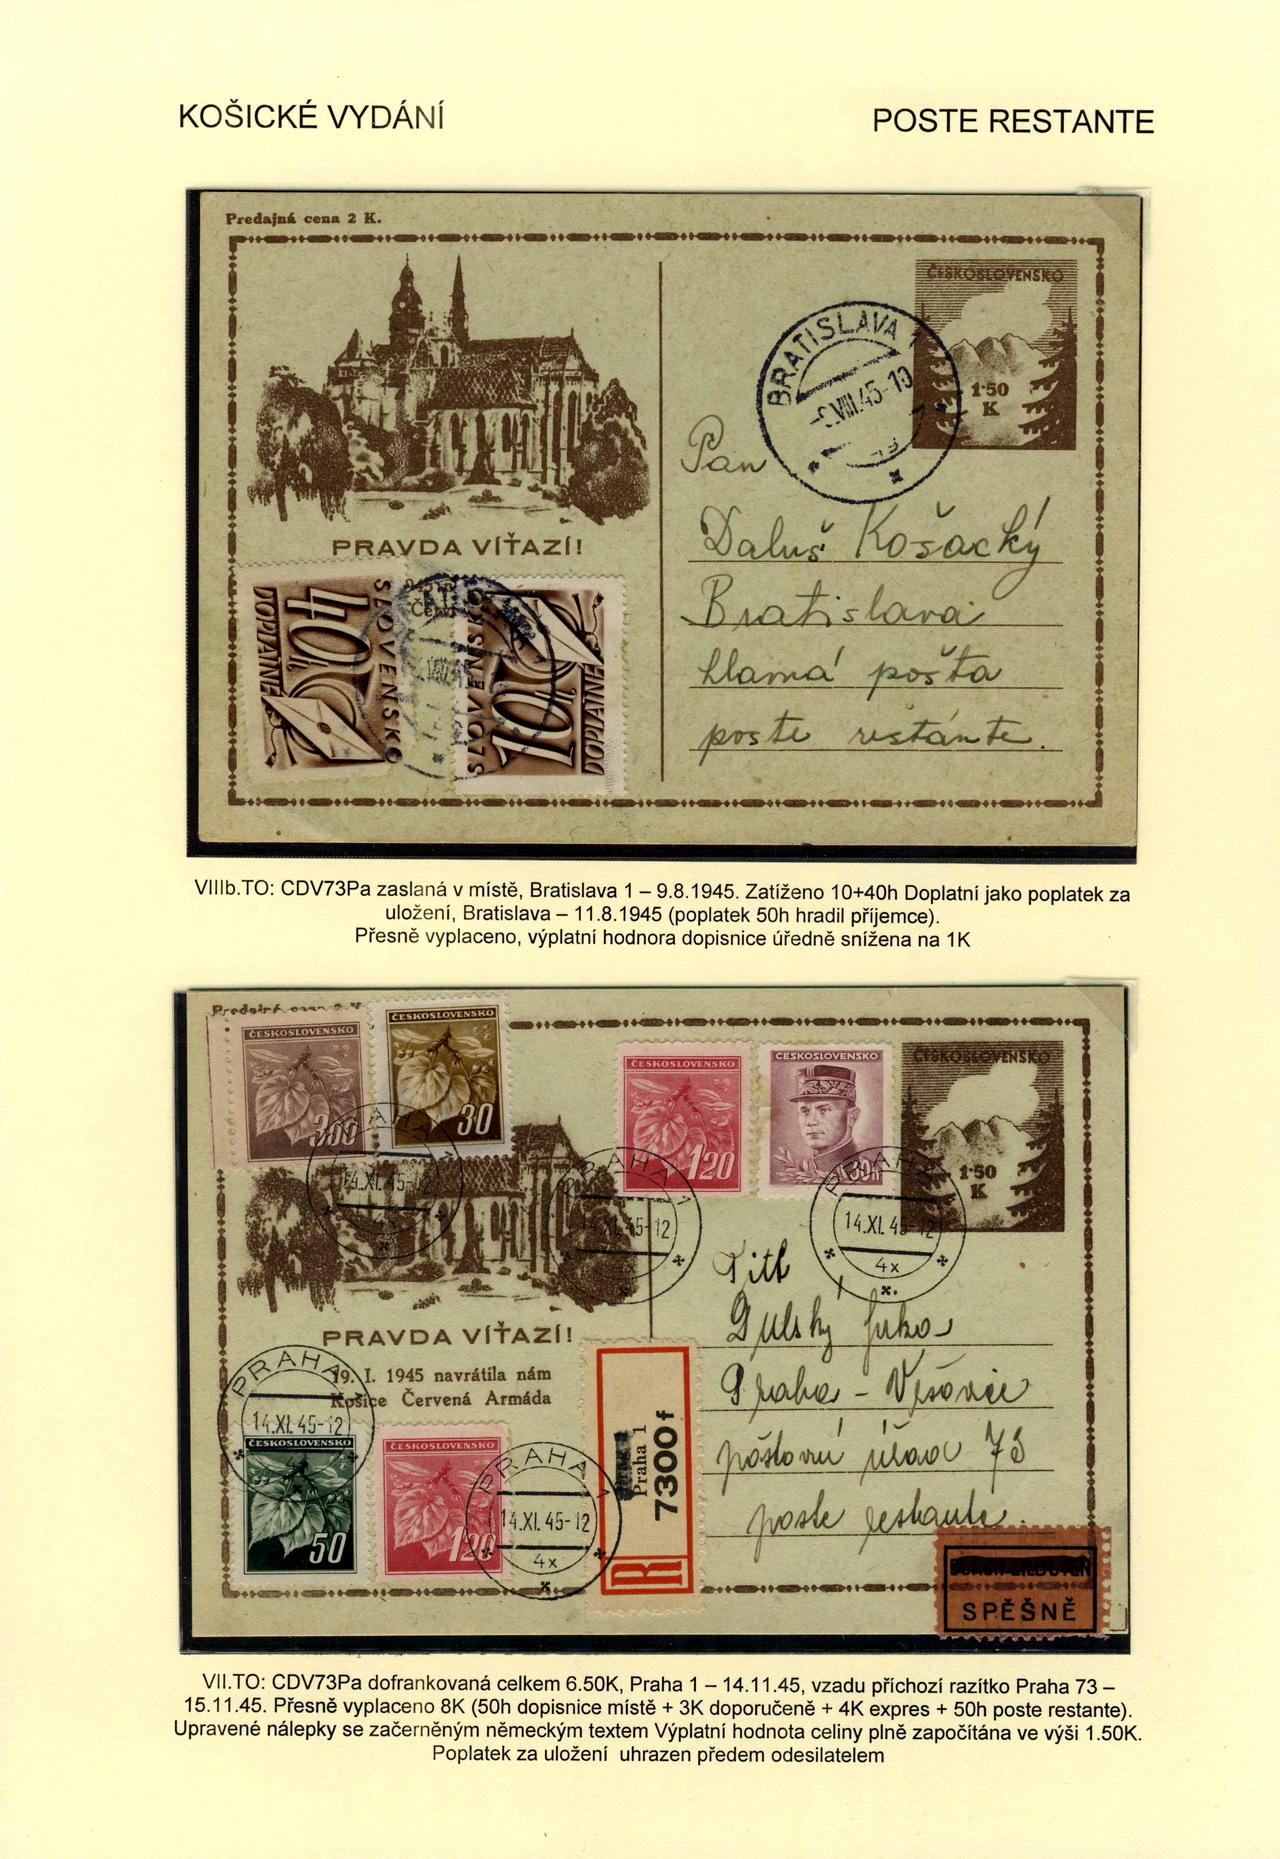 KOŠICKÉ VYDÁNÍ
POSTE RESTANTE
Predajná cena 2 K.
ČESKOSLOVENSKO
1·50
K
BRATISLAVA 1
VIII.45-10
PRAVDA VÍŤAZÍ!
Pan
Daluš Košacký
Bratislava
hlavná pošta
poste restánte.
40
SLOVENSKO
DOPLATNÉ
10
SLOVENSKO
DOPLATNÉ
VIIIb.TO: CDV73Pa zaslaná v místě, Bratislava 1 – 9.8.1945. Zatíženo 10+40h Doplatní jako poplatek za
uložení, Bratislava – 11.8.1945 (poplatek 50h hradil příjemce).
Přesně vyplaceno, výplatní hodnora dopisnice úředně snížena na 1K
Predajná cena 2 K.
ČESKOSLOVENSKO
300
ČESKOSLOVENSKO
30
ČESKOSLOVENSKO
120
ČESKOSLOVENSKO
ČESKOSLOVENSKO
1·50
K
PRAHA 1
14.XI.45-12
4x
PRAHA 1
14.XI.45-12
PRAHA
14.XI.45-12
4x
PRAVDA VÍŤAZÍ!
19. I. 1945 navrátila nám
Košice Červená Armáda
PRAHA
14.XI.45-12
ČESKOSLOVENSKO
50
ČESKOSLOVENSKO
120
PRAHA 1
14.XI.45-12
4x
Praha 1
7300f
R
Titl
Praha - Vršovice
poštovní úřad 73
poste restante.
SPĚŠNĚ
VII.TO: CDV73Pa dofrankovaná celkem 6.50K, Praha 1 – 14.11.45, vzadu příchozí razítko Praha 73 –
15.11.45. Přesně vyplaceno 8K (50h dopisnice místě + 3K doporučeně + 4K expres + 50h poste restante).
Upravené nálepky se začerněným německým textem Výplatní hodnota celiny plně započítána ve výši 1.50K.
Poplatek za uložení uhrazen předem odesilatelem